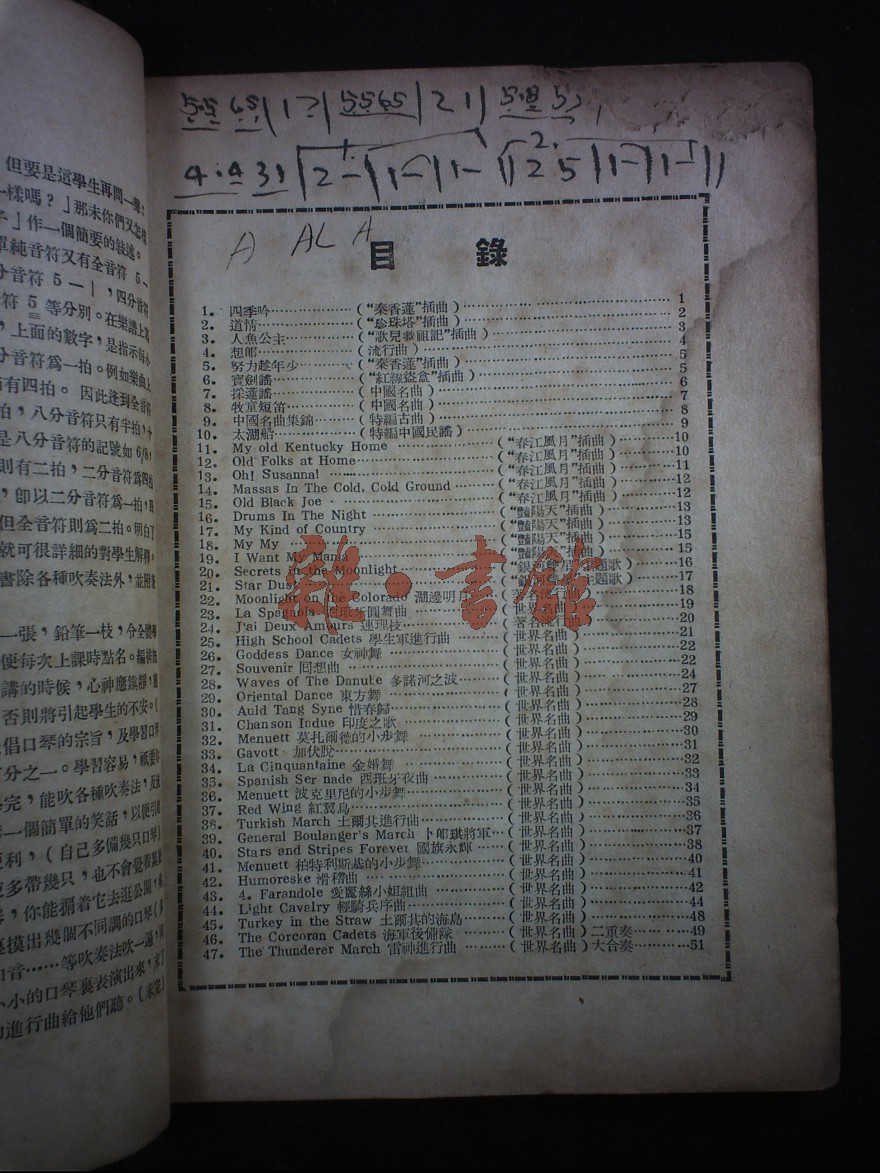 但要是這學生再問一聲：
一樣嗎？」那末你們又怎樣
子」作一個簡要的敍述。
單純音符又有全音符 5—
音符 5—|，四分音符
符 5 等分別。在樂譜上寫
，上面的數字，是指示每小
分音符爲一拍。例如樂曲上
有四拍。因此逢到全音符
拍，八分音符只有半拍，十
是八分音符的記號如 6/8，
則有二拍，二分音符爲四拍
，卽以二分音符爲一拍，四
但全音符則爲二拍。明白了
就可很詳細的對學生解釋。
書除各種吹奏法外，並附着
一張，鉛筆一枝，分全體學
便每次上課時點名。編排旣
講的時候，心神應鎭靜，態
否則將引起學生的不安。(
倡口琴的宗旨，及學習口琴
百分之一。學習容易，祇要你
完，能吹各種吹奏法，及演
一個簡單的笑話，以便引起
更利，(自己多備幾只口琴)
多帶幾只，也不會覺着累
，你能揣着它去逛公園，
摸出幾個不同調的口琴(
音……等吹奏法吹一遍，
小小的口琴裏表演出來，
進行曲給他們聽。(未完)
5·5 65|1 2|5565|21|
4·4 3|2—|1—|1—|25|1—|1—||
A ALA
目錄
1. 四季吟……(“秦香蓮”插曲)……1
2. 道情……(“珍珠塔”插曲)……2
3. 人魚公主……(“歌兒救祖記”插曲)……3
4. 想郎……(流行曲)……4
5. 努力趁年少……(“秦香蓮”插曲)……5
6. 寶劍譜……(“紅線盜盒”插曲)……5
7. 採蓮謠……(中國名曲)……6
8. 牧童短笛……(中國名曲)……7
9. 中國名曲集錦……(特編古曲)……8
10. 太湖船……(特編中國民謠)……9
11. My old Kentucky Home……(“春江風月”插曲)……10
12. Old Folks at Home……(“春江風月”插曲)……10
13. Oh! Susanna!……(“春江風月”插曲)……11
14. Massas In The Cold, Cold Ground……(“春江風月”插曲)……12
15. Old Black Joe……(“春江風月”插曲)……12
16. Drums In The Night……(“豔陽天”插曲)……13
17. My Kind of Country……(“豔陽天”插曲)……13
18. My My……(“豔陽天”插曲)……15
19. I Want My Mama……(“豔陽天”插曲)……15
20. Secrets in the Moonlight……(“銀河雙星”主題歌)……16
21. Star Dust……(“銀河雙星”主題歌)……17
22. Moonlight on the Colorado 湖邊明月……(著名流行曲)……18
23. La Spagnola 西班牙圓舞曲……(世界名曲)……19
24. J'ai Deux Amours 連理枝……(著名流行曲)……20
25. High School Cadets 學生軍進行曲……(世界名曲)……21
26. Goddess Dance 女神舞……(世界名曲)……22
27. Souvenir 囘想曲……(世界名曲)……22
28. Waves of The Danute 多諾河之波……(世界名曲)……24
29. Oriental Dance 東方舞……(世界名曲)……27
30. Auld Tang Syne 惜春歸……(世界名曲)……28
31. Chanson Indue 印度之歌……(世界名曲)……29
32. Menuett 莫扎爾德的小步舞……(世界名曲)……30
33. Gavott 加伏脫……(世界名曲)……31
34. La Cinquantaine 金婚舞……(世界名曲)……32
35. Spanish Ser nade 西班牙夜曲……(世界名曲)……33
36. Menuett 波克里尼的小步舞……(世界名曲)……34
37. Red Wing 紅翼鳥……(世界名曲)……35
38. Turkish March 土爾其進行曲……(世界名曲)……36
39. General Boulanger's March 卜郎琪將軍……(世界名曲)……37
40. Stars and Stripes Forever 國旗永輝……(世界名曲)……38
41. Menuett 柏特利斯基的小步舞……(世界名曲)……40
42. Humoreske 滑稽曲……(世界名曲)……41
43. 4. Farandole 愛麗絲小姐組曲……(世界名曲)……42
44. Light Cavelry 輕騎兵序曲……(世界名曲)……44
45. Turkey in the Straw 土爾其的海島……(世界名曲)……48
46. The Corcoran Cadets 海軍後備隊……(世界名曲)二重奏……49
47. The Thunderer March 雷神進行曲……(世界名曲)大合奏……51
雜·書館